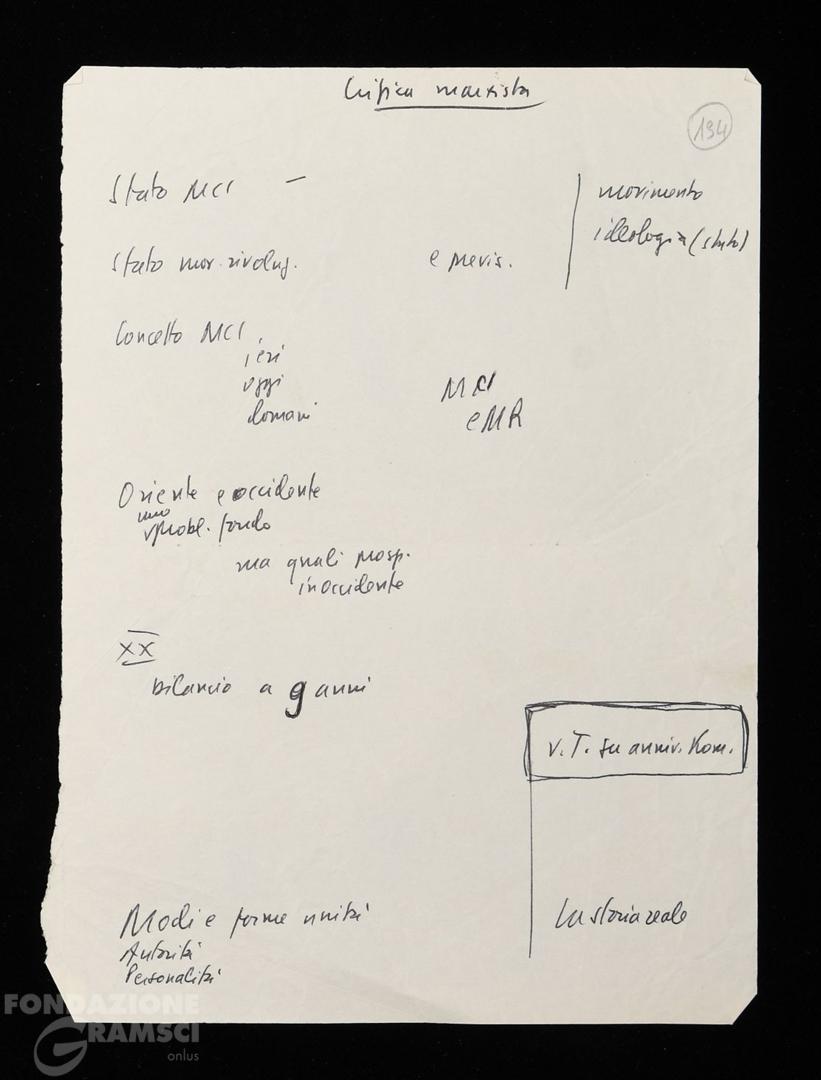 Critica marxista
194
Stato MCI —
movimento
ideologia (stato)
Stato mov. rivoluz.
e previs.
Concetto MCI,
ieri
oggi
domani
MCI
e MR
Oriente e occidente
uno
probl. fondo
ma quali prosp.
in occidente
XX
bilancio a 9 anni
v. T. su anniv. Kom.
Modi e forme unità
La storia reale
Autorità
Personalità
FONDAZIONE
GRAMSCI
onlus